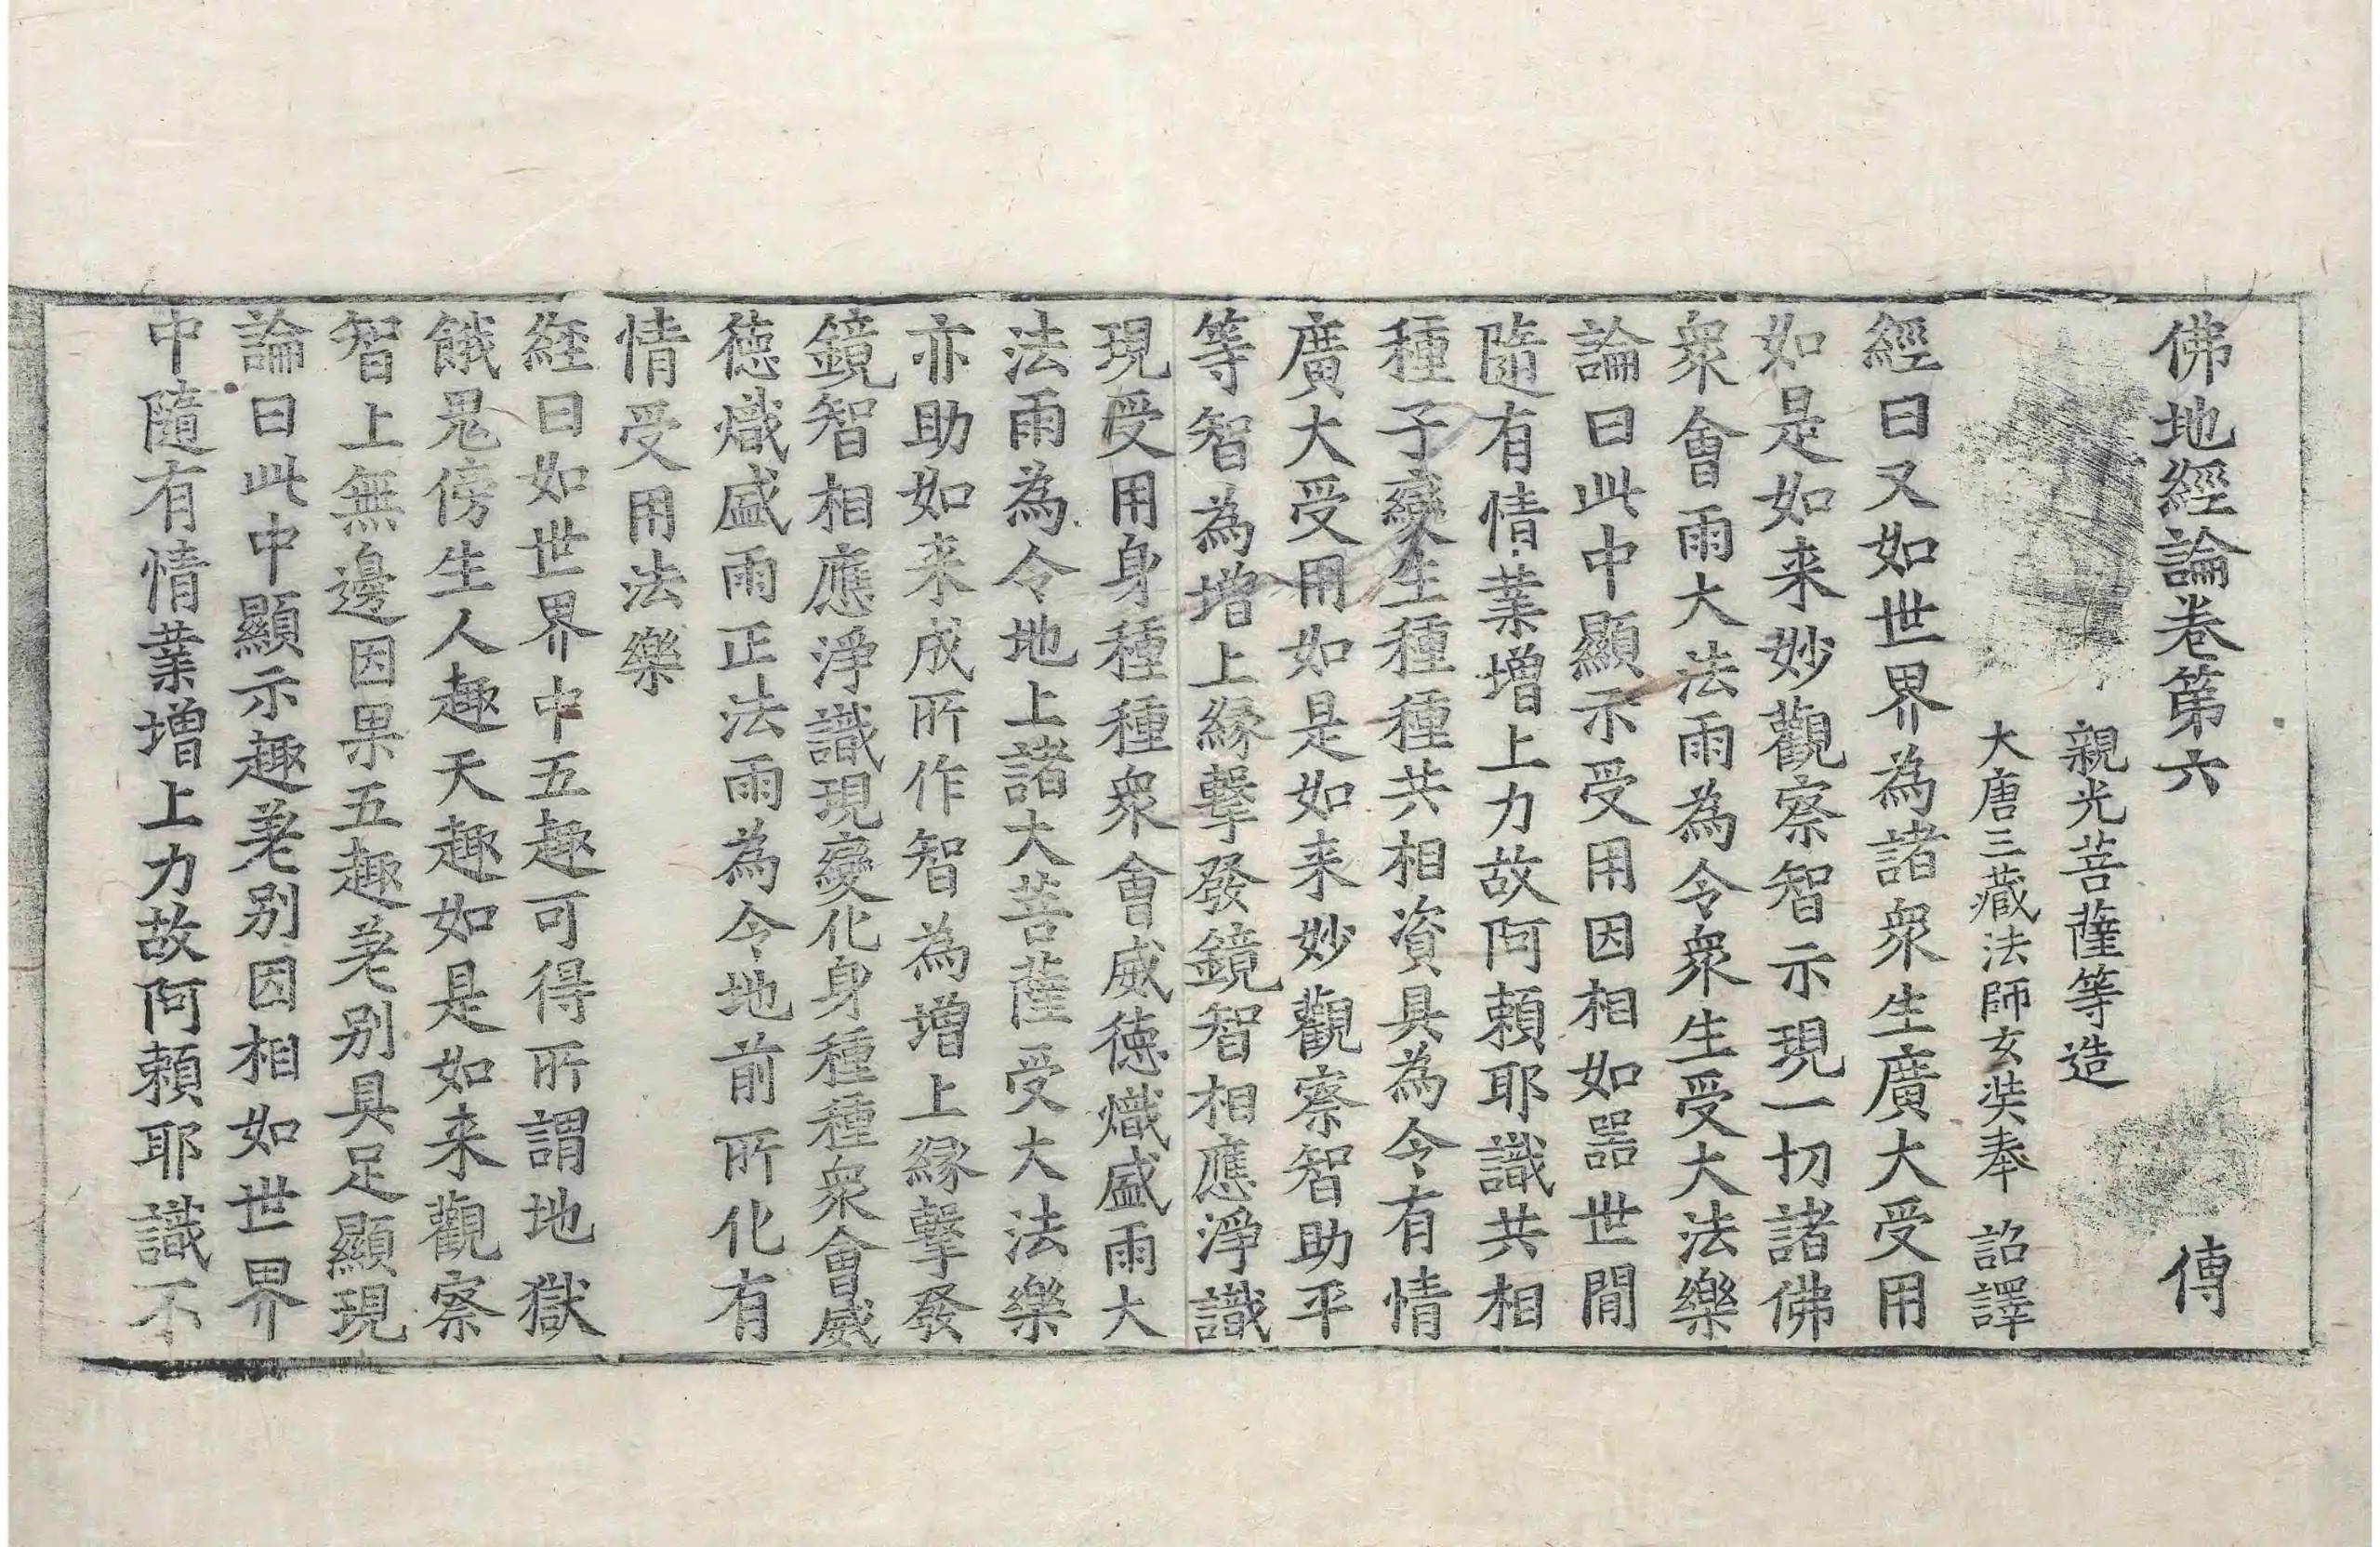 佛地經論卷第六 傳
親光菩薩等造
大唐三藏法師玄奘奉 詔譯
經曰又如世界為諸衆生廣大受用
如是如来妙觀察智示現一切諸佛
衆會雨大法雨為令衆生受大法樂
論曰此中顯示受用因相如器世間
隨有情業增上力故阿頼耶識共相
種子變生種種共相資具為令有情
廣大受用如是如来妙觀察智助平
等智為增上緣擊發鏡智相應淨識
現受用身種種衆會威德熾盛雨大
法雨為令地上諸大菩薩受大法樂
亦助如来成所作智為增上緣擊發
鏡智相應淨識現變化身種種衆會威
德熾盛雨正法雨為令地前所化有
情受用法樂
經曰如世界中五趣可得所謂地獄
餓鬼傍生人趣天趣如是如来觀察
智上無邊因果五趣差別具足顯現
論曰此中顯示趣差別因相如世界
中隨有情業增上力故阿頼耶識不